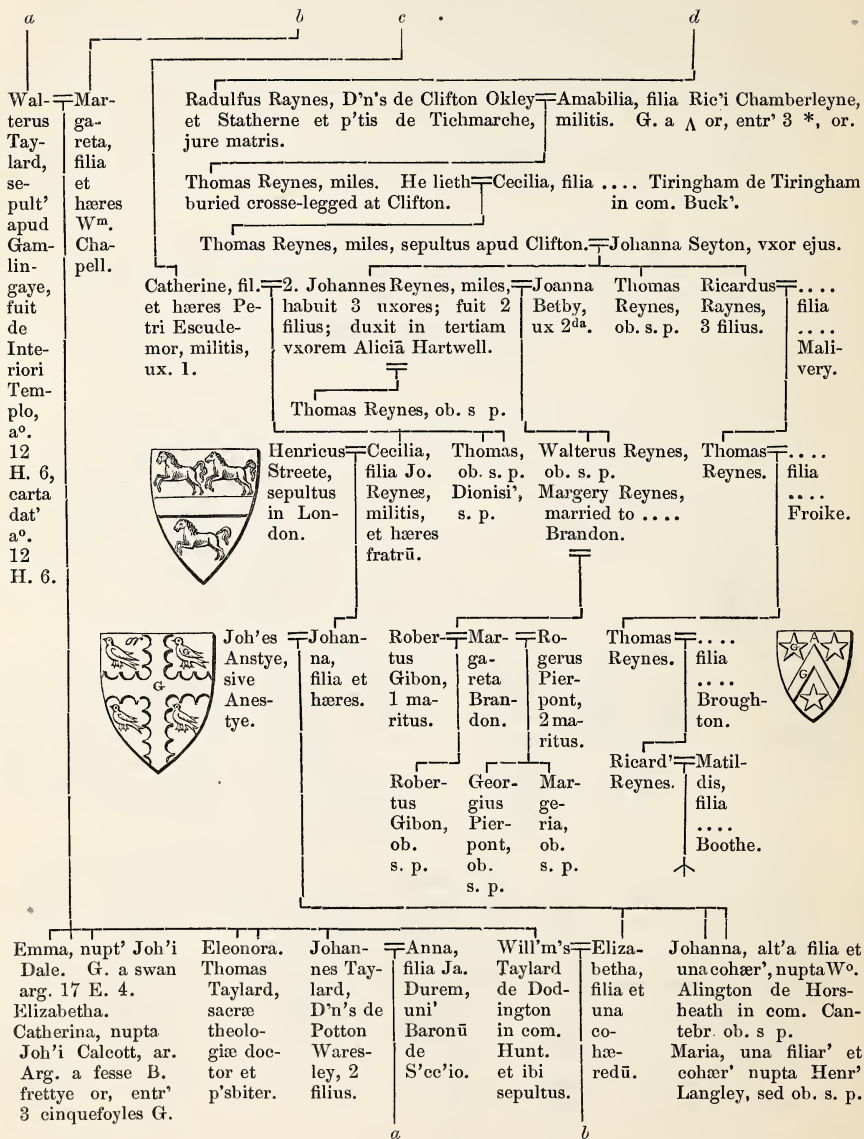 a b c d
Wal-
terus
Tay-
lard,
se-
pult'
apud
Gam-
lin-
gaye,
fuit
de
Inte-
riori
Tem-
plo,
aº.
12
H. 6,
carta
dat'
aº.
12
H. 6.
Mar-
ga-
reta,
filia
et
hæres
Wᵐ.
Cha-
pell.
Radulfus Raynes, D'n's de Clifton Okley
et Statherne et p'tis de Tichmarche,
jure matris.
Amabilia, filia Ric'i Chamberleyne,
militis. G. a Λ or, entr' 3 *, or.
Thomas Reynes, miles. He lieth
buried crosse-legged at Clifton.
Cecilia, filia .... Tiringham de Tiringham
in com. Buck'.
Thomas Reynes, miles, sepultus apud Clifton.
Johanna Seyton, vxor ejus.
Catherine, fil.
et hæres Pe-
tri Escude-
mor, militis,
ux. 1.
2. Johannes Reynes, miles,
habuit 3 uxores; fuit 2
filius; duxit in tertiam
vxorem Aliciā Hartwell.
Joanna
Betby,
ux 2ᵈᵃ.
Thomas
Reynes,
ob. s. p.
Ricardus
Raynes,
3 filius.
....
filia
....
Mali-
very.
Thomas Reynes, ob. s p.
Henricus
Streete,
sepultus
in Lon-
don.
Cecilia,
filia Jo.
Reynes,
militis,
et hæres
fratrū.
Thomas,
ob. s. p.
Dionisi',
s. p.
Walterus Reynes,
ob. s. p.
Margery Reynes,
married to ....
Brandon.
Thomas
Reynes.
....
filia
....
Froike.
or
G
Joh'es
Anstye,
sive
Anes-
tye.
Johan-
na,
filia et
hæres.
Rober-
tus
Gibon,
1 ma-
ritus.
Mar-
ga-
reta
Bran-
don.
Ro-
gerus
Pier-
pont,
2 ma-
ritus.
Thomas
Reynes.
....
filia
....
Brough-
ton.
G A
G
Rober-
tus
Gibon,
ob.
s. p.
Geor-
gius
Pier-
pont,
ob.
s. p.
Mar-
ge-
ria,
ob.
s. p.
Ricard'
Reynes.
Matil-
dis,
filia
....
Boothe.
Emma, nupt' Joh'i
Dale. G. a swan
arg. 17 E. 4.
Elizabetha.
Catherina, nupta
Joh'i Calcott, ar.
Arg. a fesse B.
frettye or, entr'
3 cinquefoyles G.
Eleonora.
Thomas
Taylard,
sacræ
theolo-
giæ doc-
tor et
p'sbiter.
Johan-
nes Tay-
lard,
D'n's de
Potton
Wares-
ley, 2
filius.
Anna,
filia Ja.
Durem,
uni'
Baronū
de
S'cc'io.
Will'm's
Taylard
de Dod-
ington
in com.
Hunt.
et ibi
sepultus.
Eliza-
betha,
filia et
una
co-
hæ-
redū.
Johanna, alt'a filia et
una cohær', nupta Wº.
Alington de Hors-
heath in com. Can-
tebr. ob. s p.
Maria, una filiar' et
cohær' nupta Henr'
Langley, sed ob. s. p.
a b